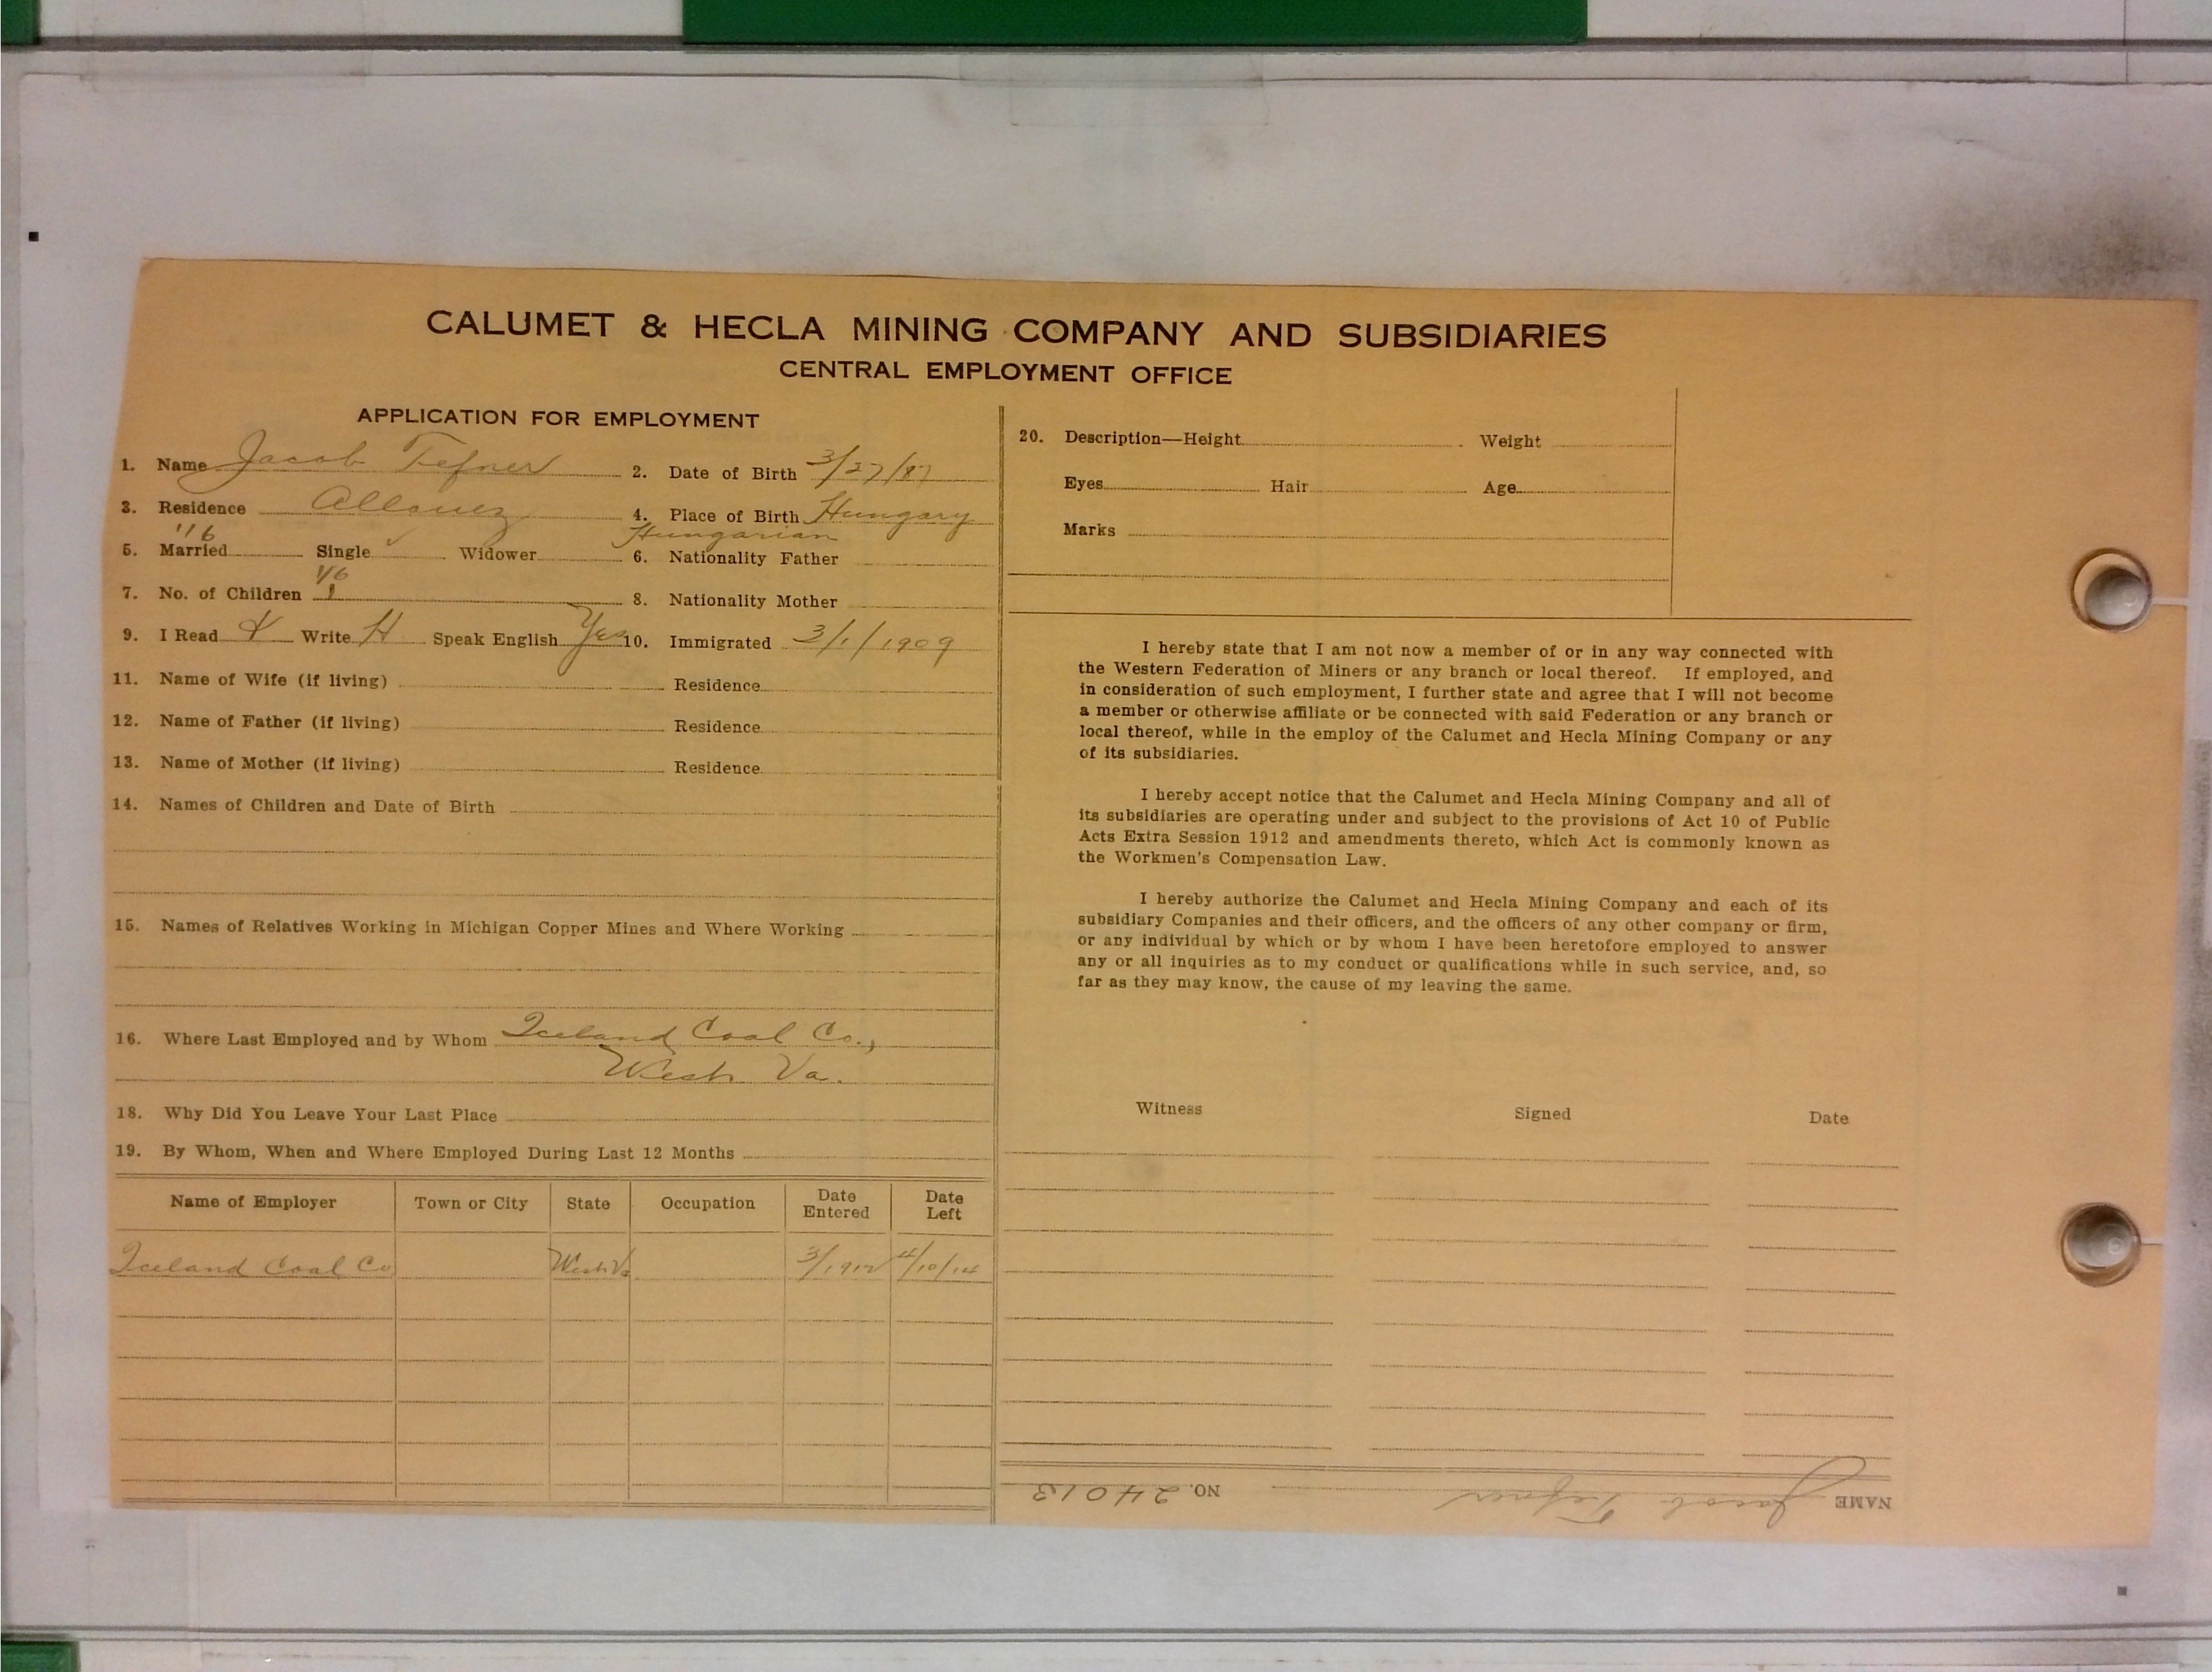 CALUMET & HECLA MINING COMPANY AND SUBSIDIARIES
CENTRAL EMPLOYMENT OFFICE
APPLICATION FOR EMPLOYMENT
1. Name Jacob Tefner 2. Date of Birth 3/27/87
3. Residence Allouez 4. Place of Birth Hungary
116 Hungarian
5. Married Single ✓ Widower 6. Nationality Father
1/6
7. No. of Children 1 8. Nationality Mother
9. I Read Write H Speak English Yes 10. Immigrated 3/1/1909
11. Name of Wife (if living) Residence
12. Name of Father (if living) Residence
13. Name of Mother (if living) Residence
14. Names of Children and Date of Birth
15. Names of Relatives Working in Michigan Copper Mines and Where Working
16. Where Last Employed and by Whom Iceland Coal Co.,
West Va.
18. Why Did You Leave Your Last Place
19. By Whom, When and Where Employed During Last 12 Months
Name of Employer Town or City State Occupation Date Entered Date Left
Iceland Coal Co West Va 3/1912 4/10/14
20. Description—Height Weight
Eyes Hair Age
Marks
I hereby state that I am not now a member of or in any way connected with
the Western Federation of Miners or any branch or local thereof. If employed, and
in consideration of such employment, I further state and agree that I will not become
a member or otherwise affiliate or be connected with said Federation or any branch or
local thereof, while in the employ of the Calumet and Hecla Mining Company or any
of its subsidiaries.
I hereby accept notice that the Calumet and Hecla Mining Company and all of
its subsidiaries are operating under and subject to the provisions of Act 10 of Public
Acts Extra Session 1912 and amendments thereto, which Act is commonly known as
the Workmen's Compensation Law.
I hereby authorize the Calumet and Hecla Mining Company and each of its
subsidiary Companies and their officers, and the officers of any other company or firm,
or any individual by which or by whom I have been heretofore employed to answer
any or all inquiries as to my conduct or qualifications while in such service, and, so
far as they may know, the cause of my leaving the same.
Witness Signed Date
NAME Jacob Tefner NO. 24013